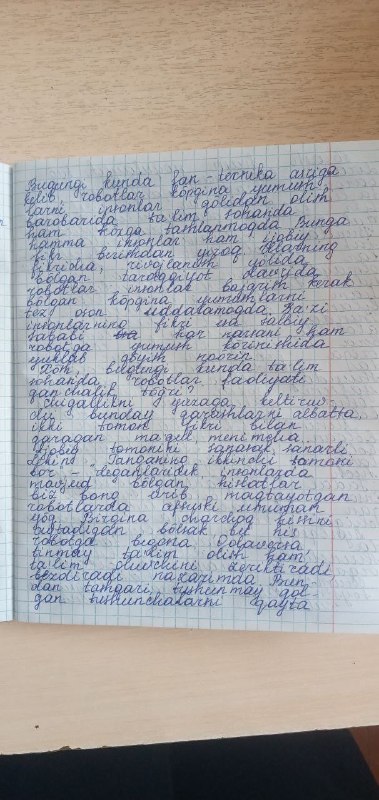 Bugungi kunda fan-texnika asriga
kelib, robotlar ko'pgina yumush
larni insonlar qo'lidan olim
barobarida ta'lim sohanda
ham ko'zga tashlanmoqda. Bunga
hamma insonlar ham ijobiy
fikr bermidan yiroq. Ularning
fikricha, rivojlanish yo'lida
bo'lgan taraqqiyot davrida
robotlar insonlar bajarish kerak
bo'lgan ko'pgina yumushlarni
tez, oson uddalamoqda. Ba'zi
insonlarning fikri esa salbiy
sababi har narsani ham
robotga yumush ko'rinishida
yuklab qo'yish noo'rin.
Xo'sh, bugungi kunda ta'lim
sohanda robotlar faoliyati
qanchalik to'g'ri?
Chigallikni yuzaga keltiruv-
chi bunday qarashlarni albatta,
ikki tomon fikri bilan
qaragan ma'qul, menimcha,
ijobiy tomonini sanasak, sanarli
Lekin "Tanganing ikkinchi tomoni
bor" - deganlaridek, insonlarda
mavjud bo'lgan hislatlar
biz bong urib maqtayotgan
robotlarda afsuski umuman
yo'q. Birgina charchoq hissini
aytadigan bo'lsak bu his
robotga begona. Qolaversa
tinmay ta'lim olish ham,
ta'lim oluvchini zeriktiradi,
bezdiradi nazarimda. Bun-
dan tashqari, tushunmay qol-
gan tushunchalarni qayta